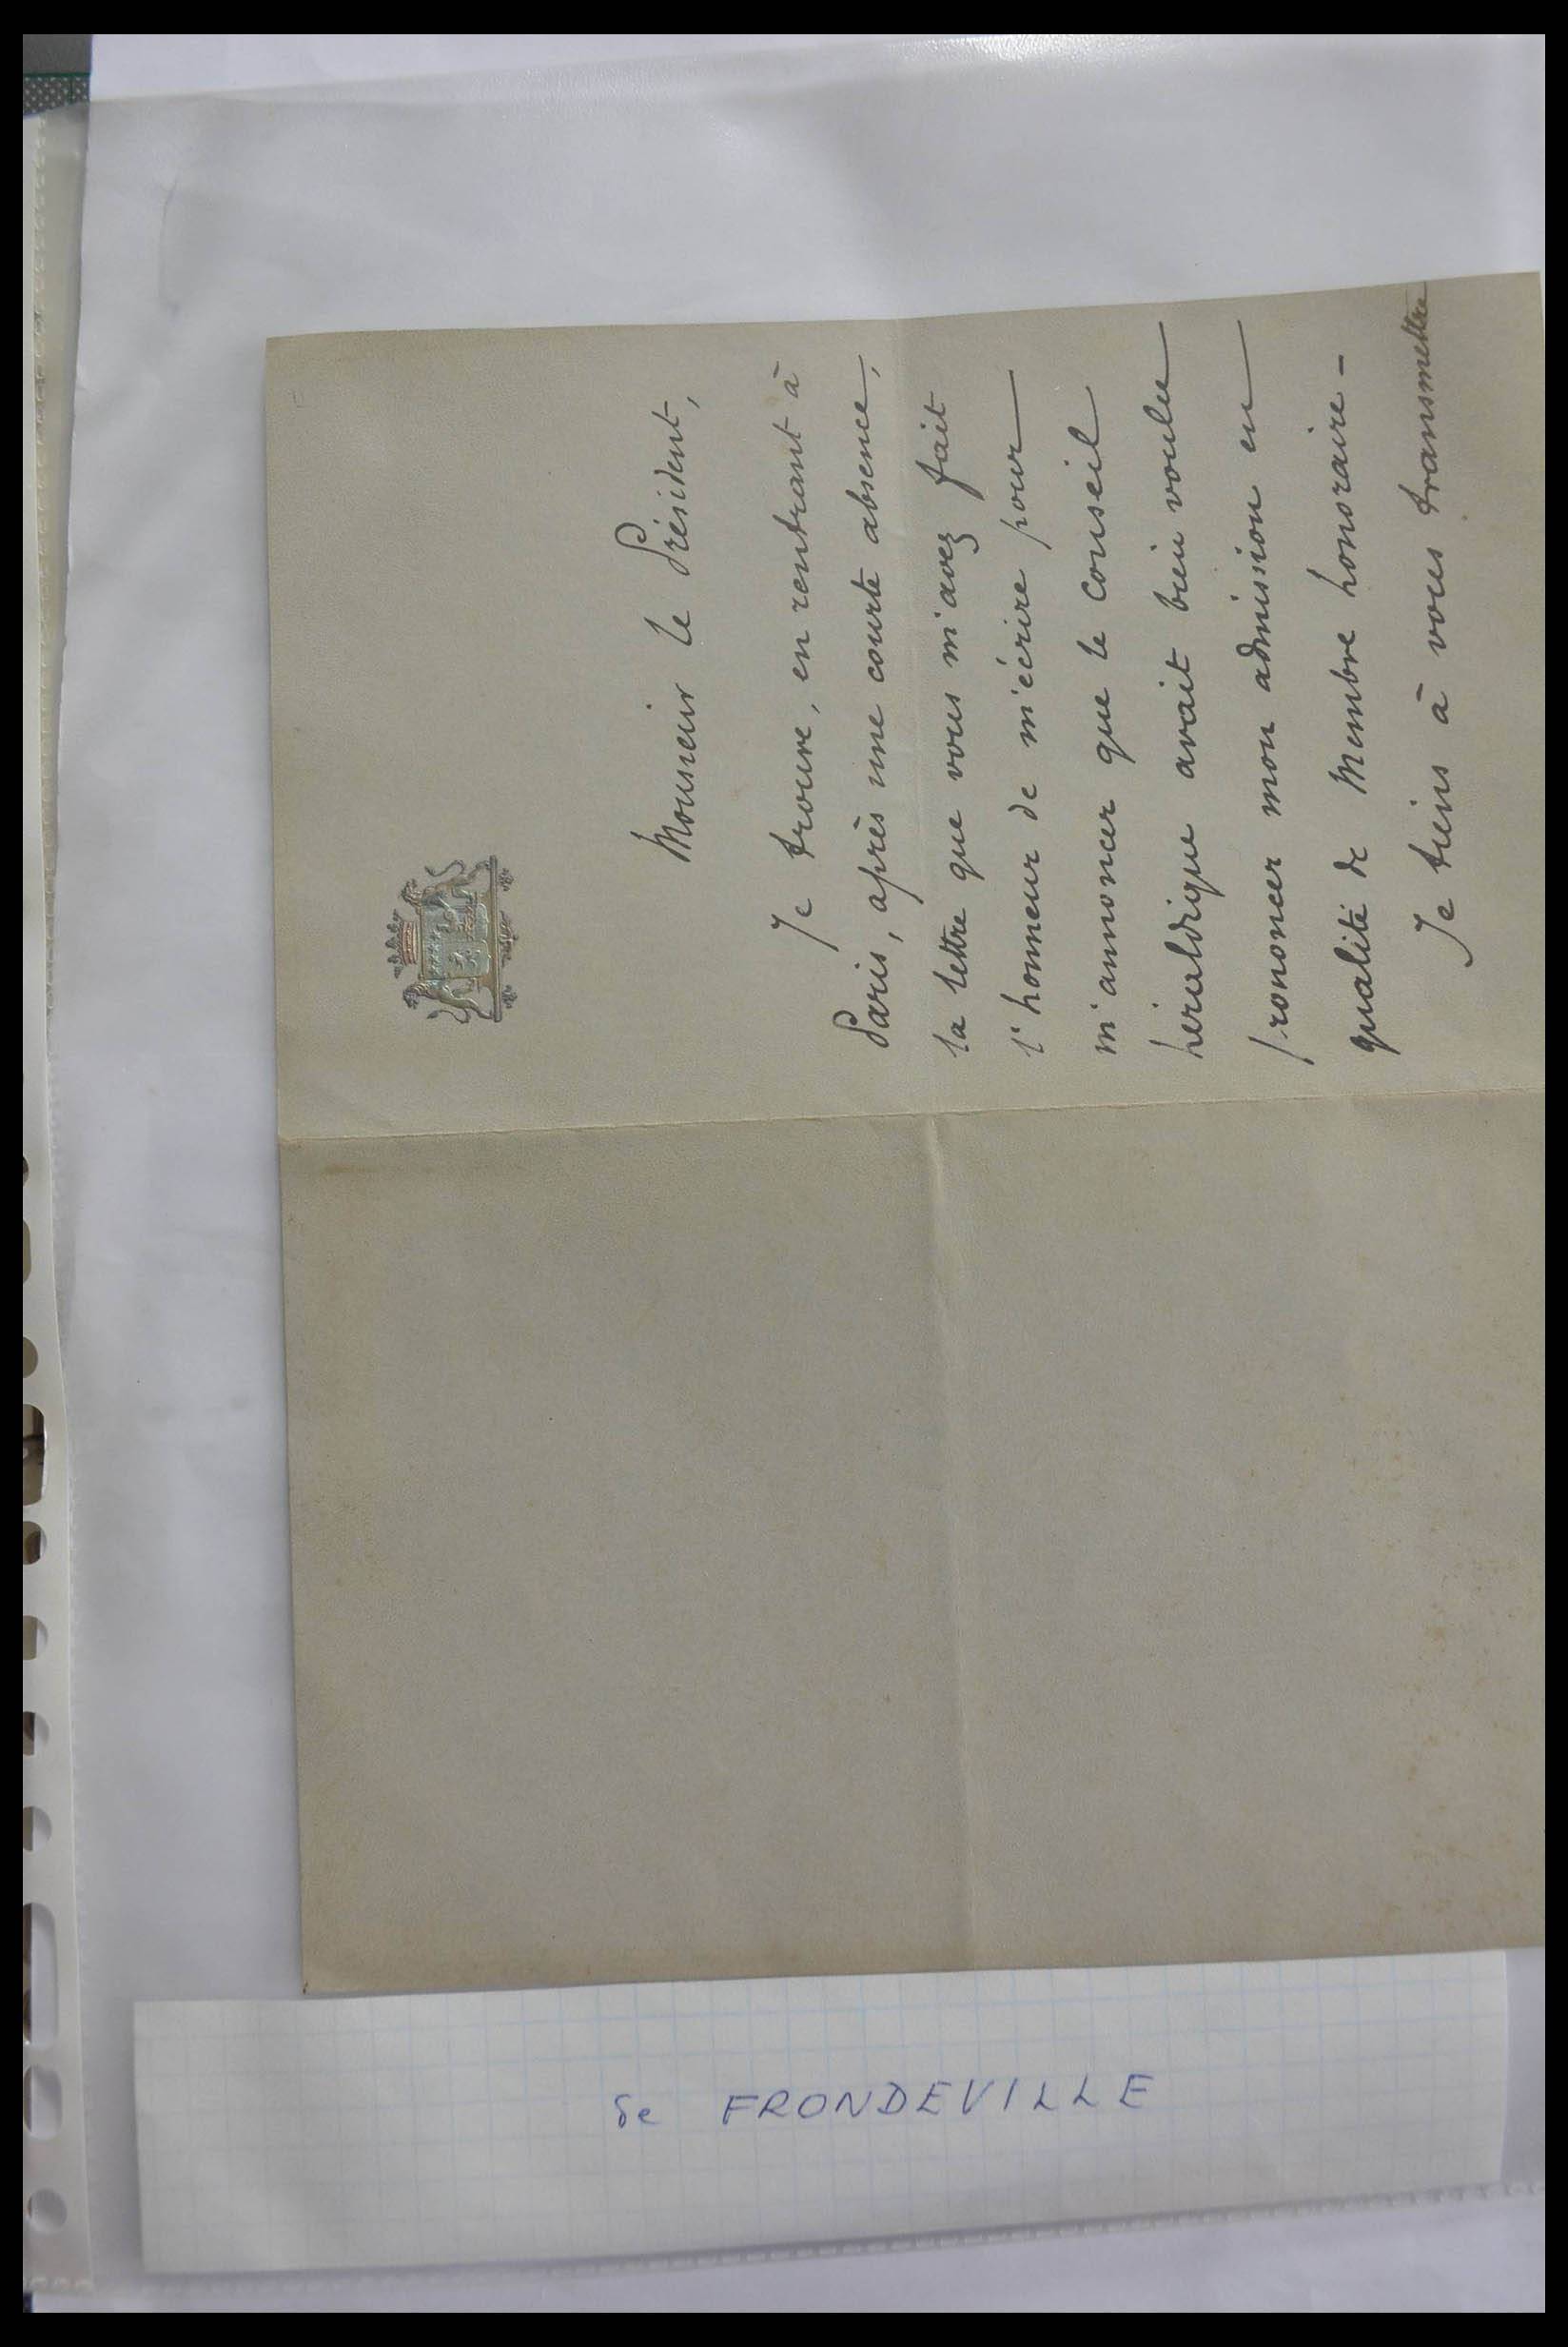 Monsieur le Président,
Je trouve, en rentrant à
Paris, après une courte absence,
la lettre que vous m'avez fait
l'honneur de m'écrire pour
m'annoncer que le conseil
héraldique avait bien voulu
prononcer mon admission en
qualité de Membre honoraire -
Je tiens à vous transmettre
de FRONDEVILLE